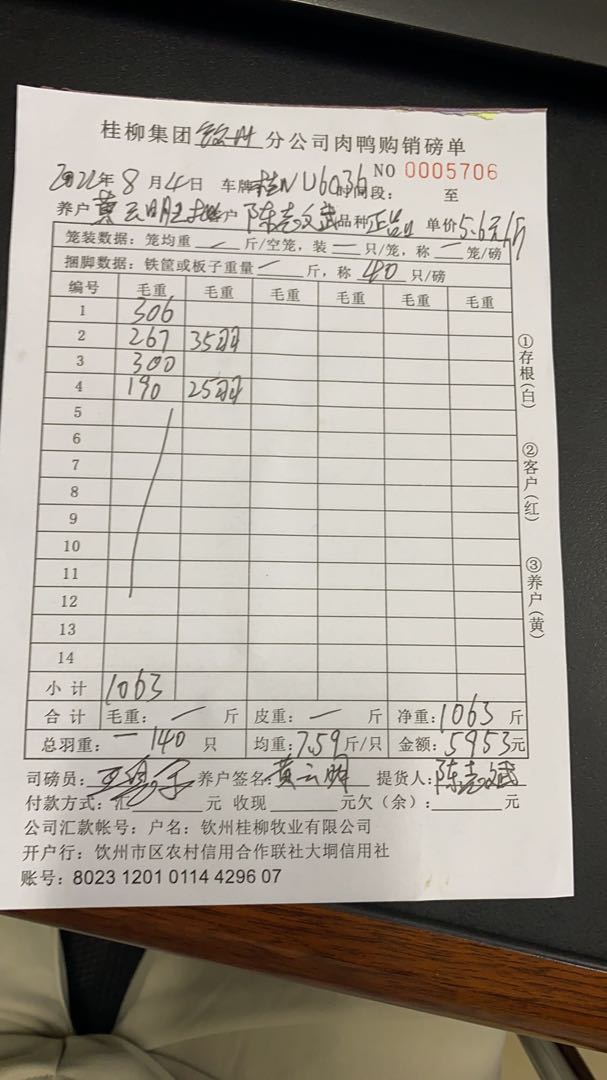 桂柳集团钦州分公司肉鸭购销磅单
2022年8月4日 车牌桂NU6036时间段： 至 NO 0005706
养户黄云明 客户陈志文武品种正品 单价5.6元/斤
笼装数据：笼均重一斤/空笼，装一只/笼，称一笼/磅
捆脚数据：铁筐或板子重量一斤，称40只/磅
编号 毛重 毛重 毛重 毛重 毛重 毛重
1 306
2 267 35羽
3 300
4 190 25羽
5
6
7
8
9
10
11
12
13
14
小计 1063
合计 毛重：一斤 皮重：一斤 净重：1063斤
总羽重：一140只 均重：7.59斤/只 金额：5953元
司磅员： 养户签名：黄云明 提货人：陈志文武
付款方式：汇 元 收现 元欠（余）： 元
公司汇款帐号：户名：钦州桂柳牧业有限公司
开户行：钦州市区农村信用合作联社大垌信用社
账号：8023 1201 0114 4296 07
①存根（白）
②客户（红）
③养户（黄）